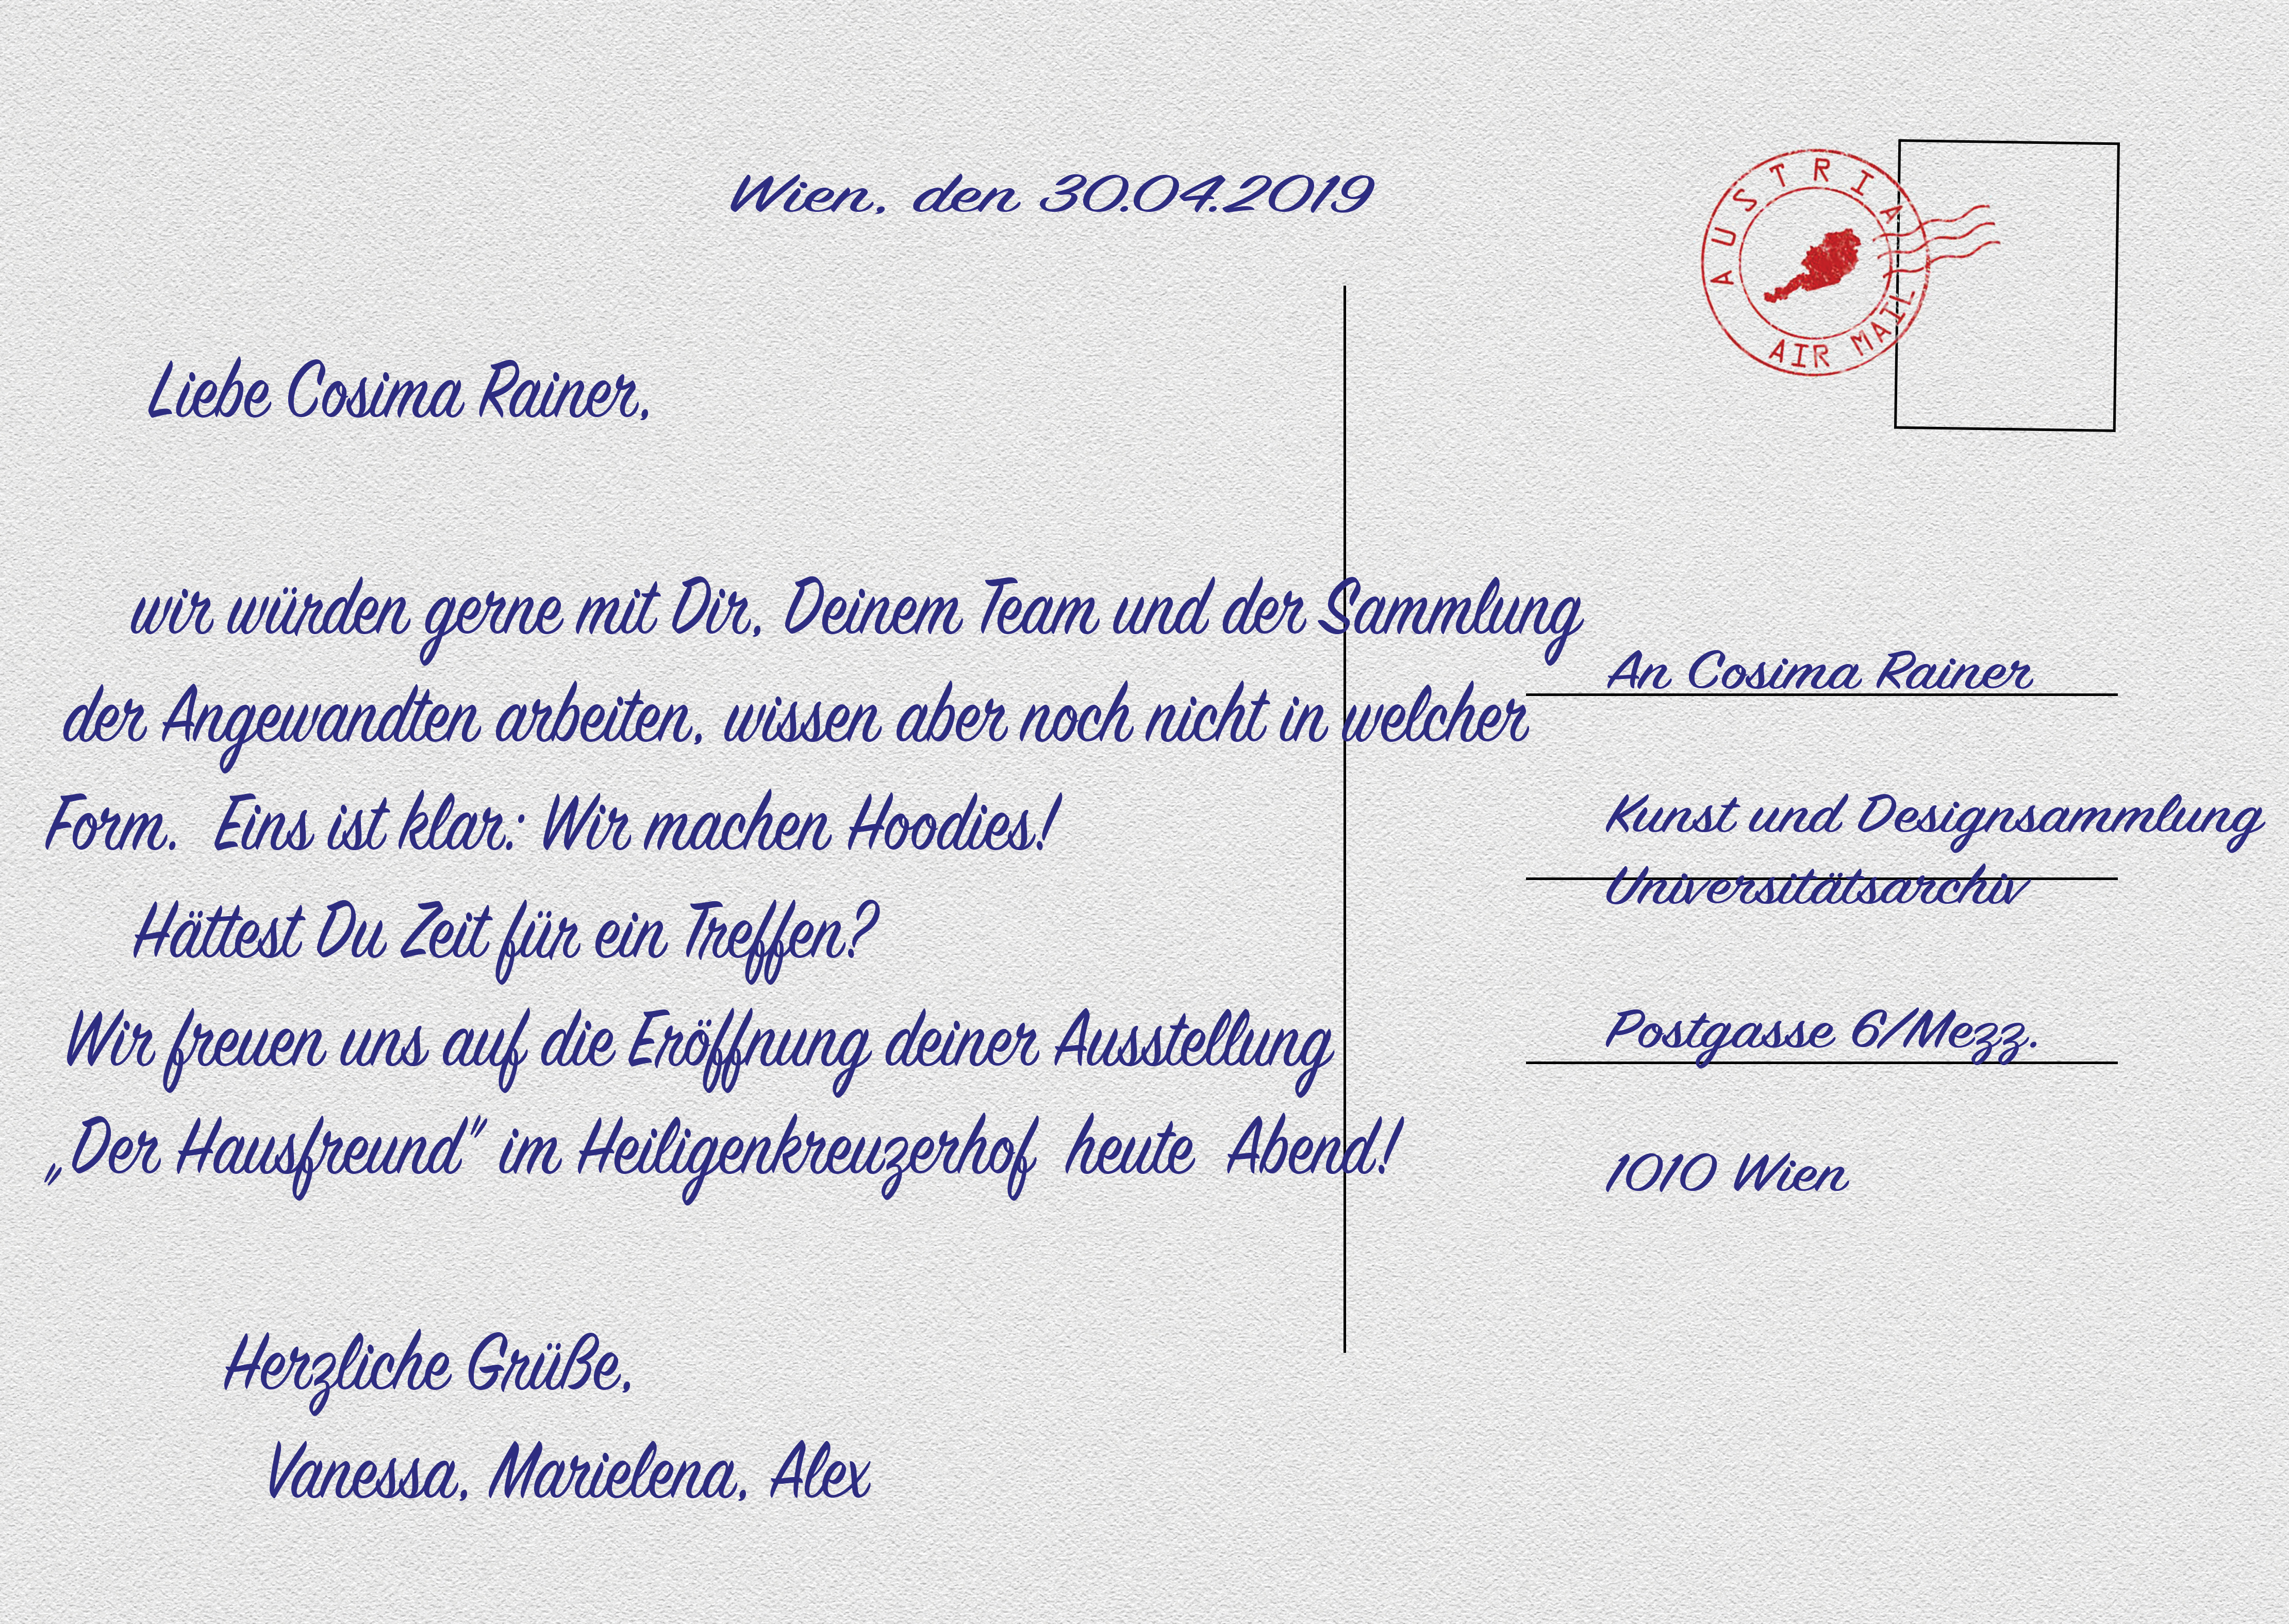 Wien, den 30.04.2019
AUSTRIA
AIR MAIL
Liebe Cosima Rainer,
wir würden gerne mit Dir, Deinem Team und der Sammlung
der Angewandten arbeiten, wissen aber noch nicht in welcher
Form. Eins ist klar: Wir machen Hoodies!
Hättest Du Zeit für ein Treffen?
Wir freuen uns auf die Eröffnung deiner Ausstellung
„Der Hausfreund" im Heiligenkreuzerhof heute Abend!
Herzliche Grüße,
Vanessa, Marielena, Alex
An Cosima Rainer
Kunst und Designsammlung
Universitätsarchiv
Postgasse 6/Mezz.
1010 Wien